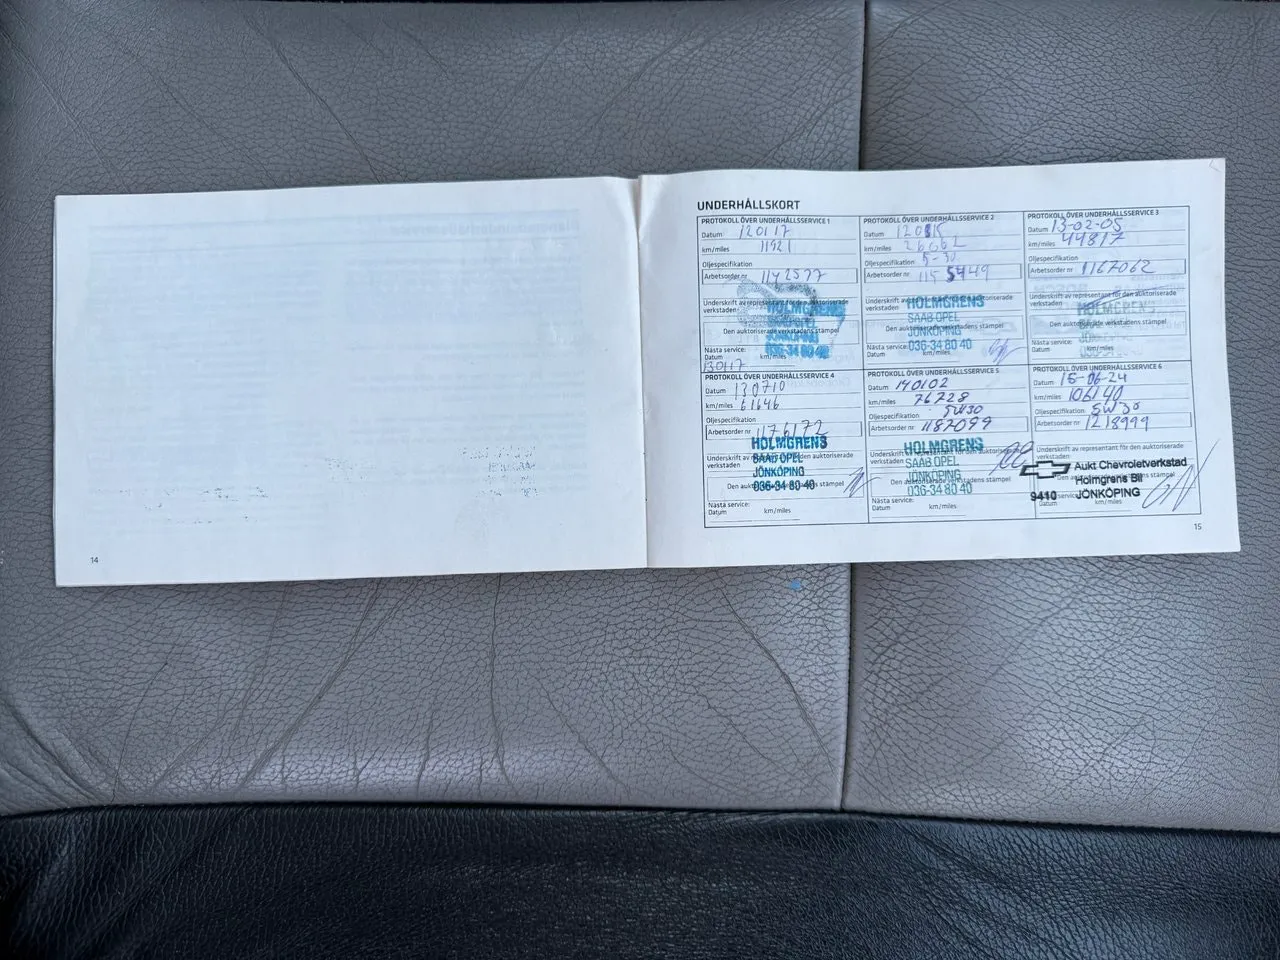 UNDERHÅLLSKORT
PROTOKOLL ÖVER UNDERHÅLLSSERVICE 1
Datum 120117
km/miles 11921
Oljespecifikation
Arbetsorder nr 1142577
Underskrift av representant för den auktoriserade
verkstaden
HOLMGRENS
Den auktoriserade verkstadens stämpel
JÖNKÖPING
036-34 80 40
Nästa service:
Datum km/miles
130117
PROTOKOLL ÖVER UNDERHÅLLSSERVICE 2
Datum
km/miles 26062
Oljespecifikation 5-30
Arbetsorder nr 1155449
Underskrift av representant för den auktoriserade
verkstaden
HOLMGRENS
SAAB OPEL
Den auktoriserade verkstadens stämpel
JÖNKÖPING
036-34 80 40
Nästa service:
Datum km/miles
PROTOKOLL ÖVER UNDERHÅLLSSERVICE 3
Datum 13-02-05
km/miles 44817
Oljespecifikation
Arbetsorder nr 1167062
Underskrift av representant för den auktoriserade
verkstaden
HOLMGRENS
Den auktoriserade verkstadens stämpel
Nästa service:
Datum km/miles
PROTOKOLL ÖVER UNDERHÅLLSSERVICE 4
Datum 130710
km/miles 61646
Oljespecifikation
Arbetsorder nr 1176172
HOLMGRENS
Underskrift av representant för den auktoriserade
verkstaden
SAAB OPEL
JÖNKÖPING
Den auktoriserade verkstadens stämpel
036-34 80 40
Nästa service:
Datum km/miles
PROTOKOLL ÖVER UNDERHÅLLSSERVICE 5
Datum 140102
km/miles 76728
Oljespecifikation 5W30
Arbetsorder nr 1187099
HOLMGRENS
Underskrift av representant för den auktoriserade
verkstaden
SAAB OPEL
JÖNKÖPING
Den auktoriserade verkstadens stämpel
036-34 80 40
Nästa service:
Datum km/miles
PROTOKOLL ÖVER UNDERHÅLLSSERVICE 6
Datum 15-06-24
km/miles 106140
Oljespecifikation 5W30
Arbetsorder nr 1218999
Underskrift av representant för den auktoriserade
verkstaden
Aukt Chevroletverkstad
Den auktoriserade verkstadens stämpel
Holmgrens Bil
9410 JÖNKÖPING
Nästa service:
Datum km/miles
14
15